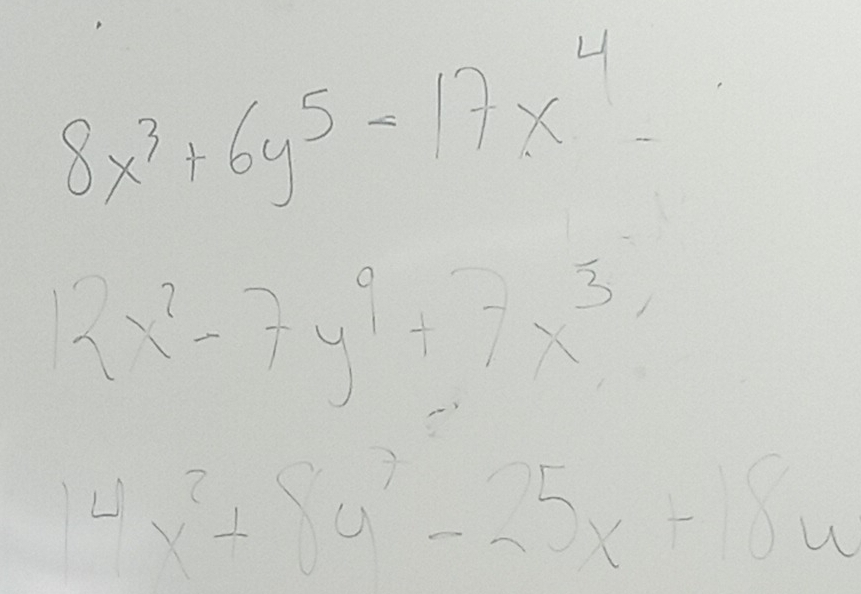 8x³ + 6y⁵ - 17x⁴
12x² - 7y⁹ + 7x³
14x² + 8y⁷ - 25x + 18w